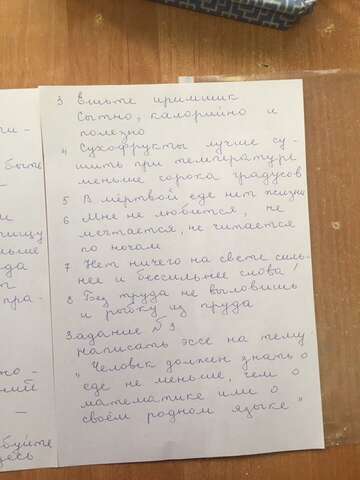 ги-
быть
и
пищу
ньше
да
и
пра-
но-
ний
буйте
десь
3 вшьте иримшик
Сытно, калорийно и
полезно
4 Сухофрукты лучше су-
шить при температуре
меньше сорока градусов
5 В мёртвой еде нет жизни
6 Мне не любится, не
мечтается, не читается
по ночам
7 Нет ничего на свете силь-
нее и бессильнее слова!
8 Без труда не выловишь
и рыбку из пруда
Задание № 3.
Написать эссе на тему:
"Человек должен знать о
еде не меньше, чем о
математике или о
своём родном языке"